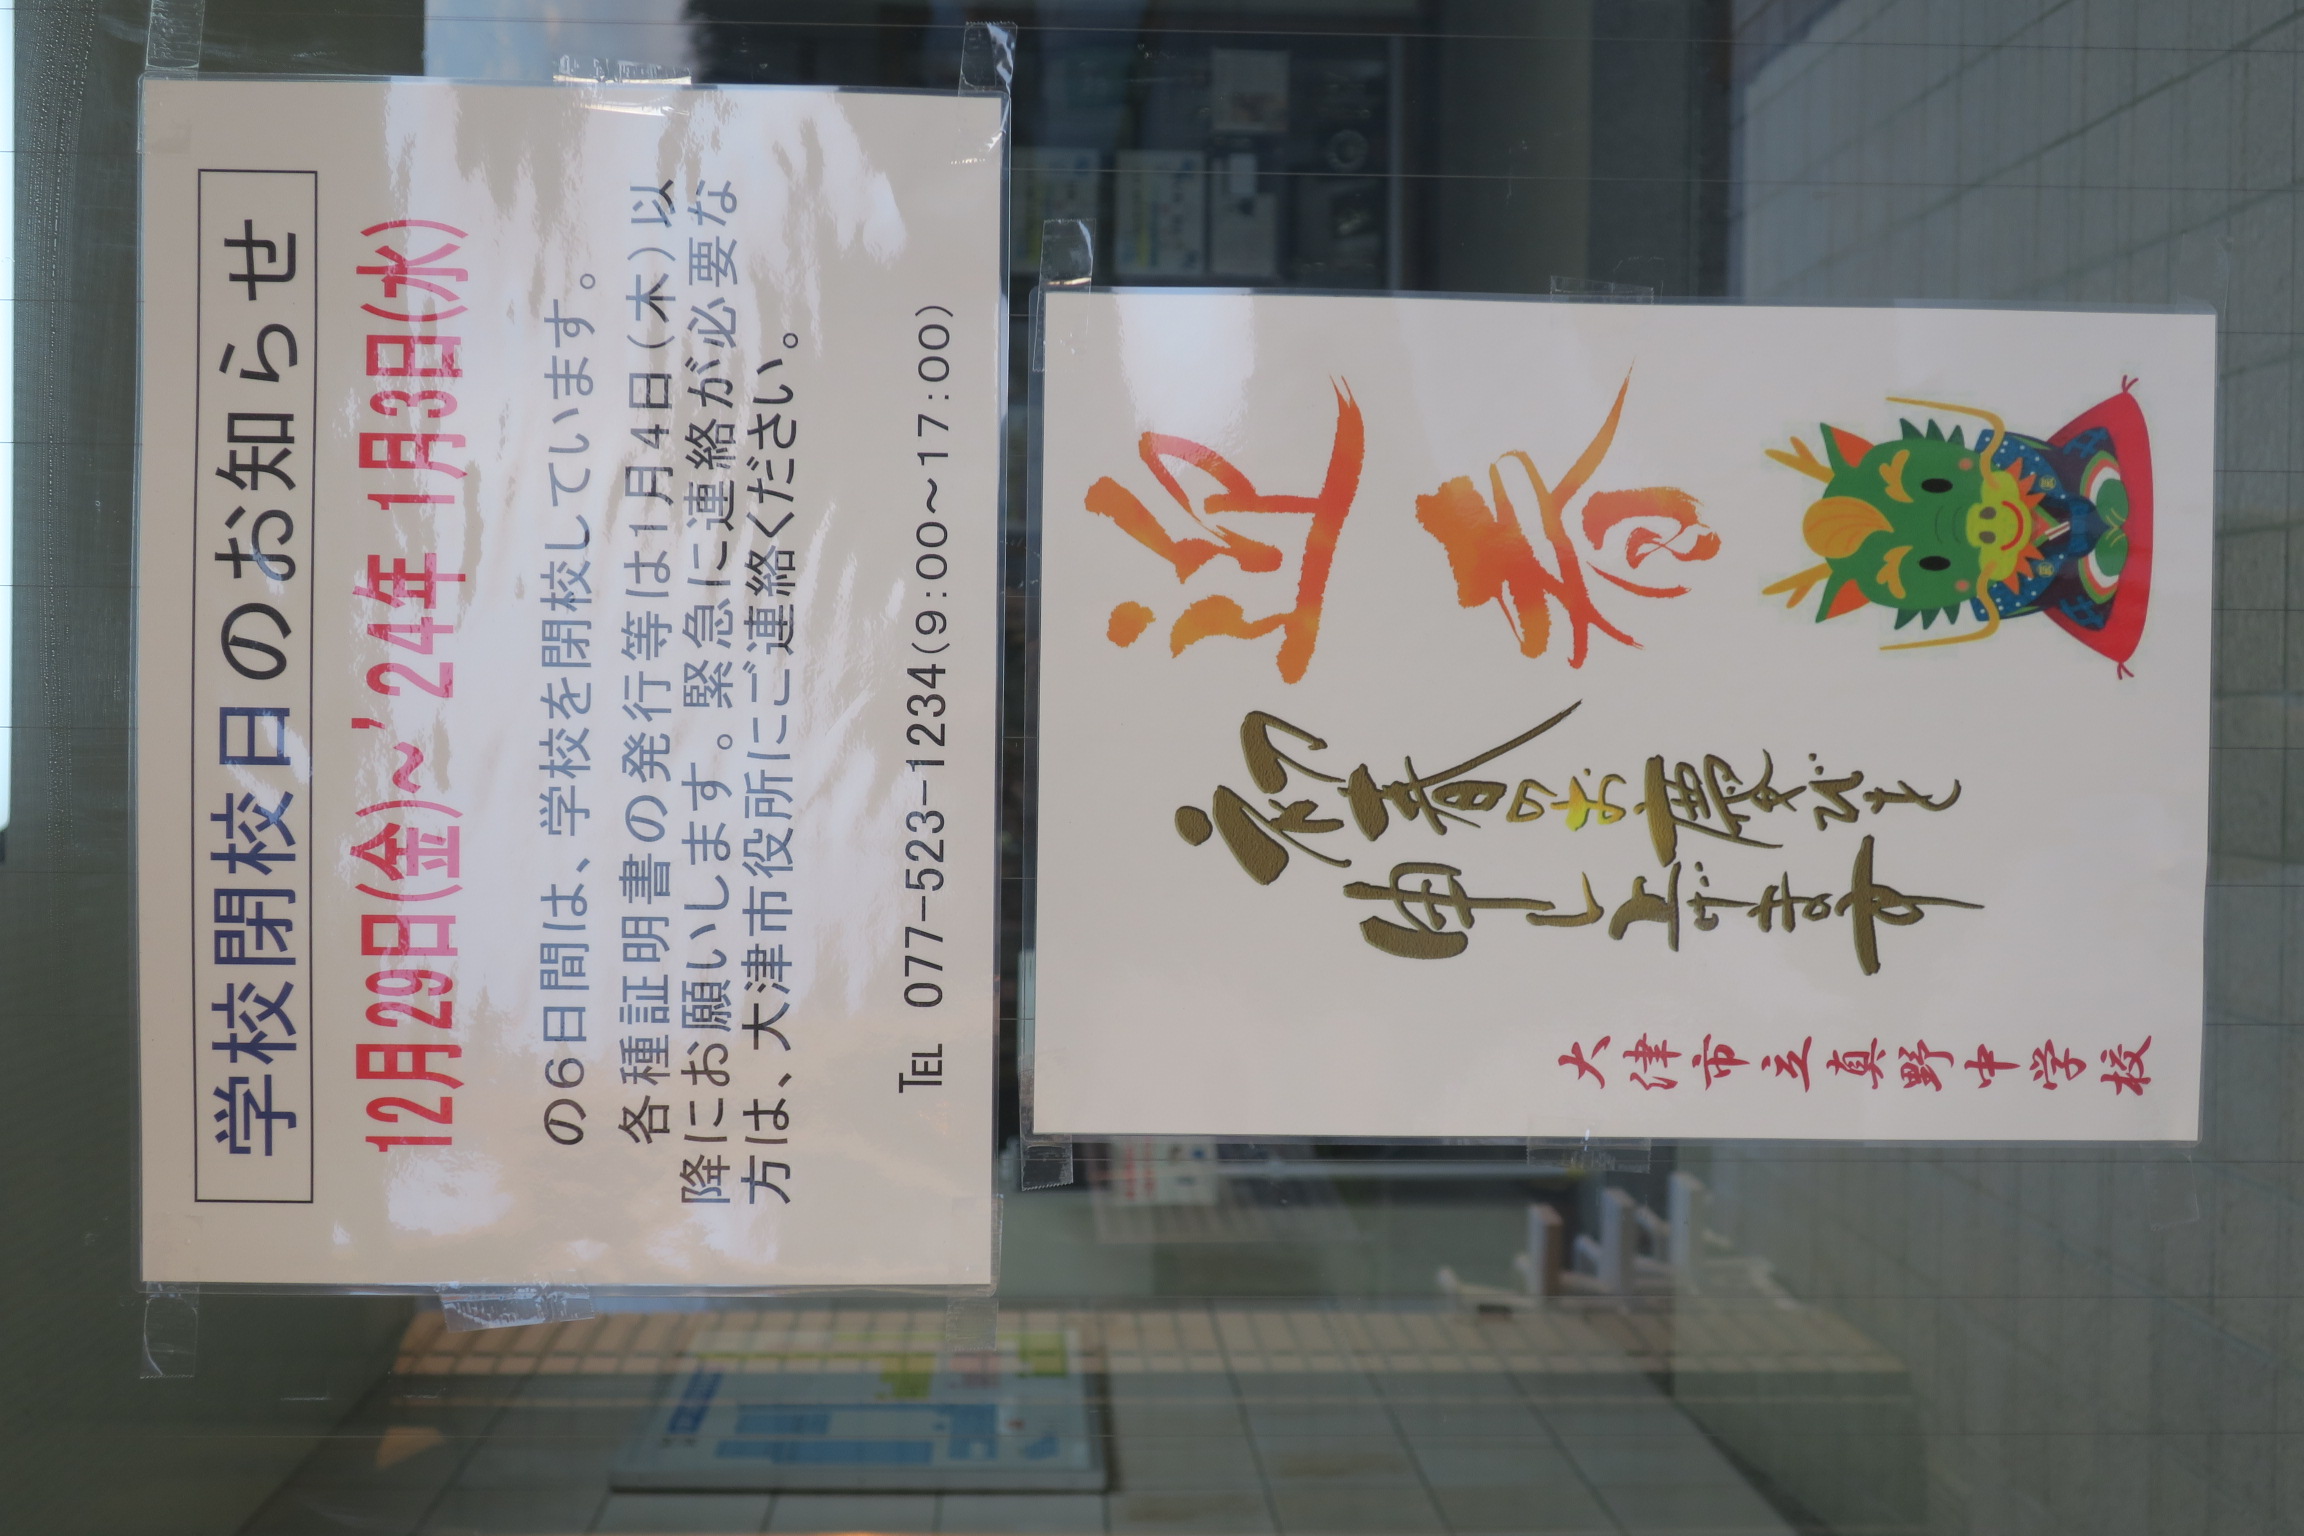 学校閉校日のお知らせ
12月29日(金)~’24年 1月3日(水)
の6日間は、学校を閉校しています。
各種証明書の発行等は1月4日(木)以
降にお願いします。緊急に連絡が必要な
方は、大津市役所にご連絡ください。
TEL 077-523-1234(9:00~17:00)
迎春
初春のお慶びを
申し上げます
大津市立真野中学校